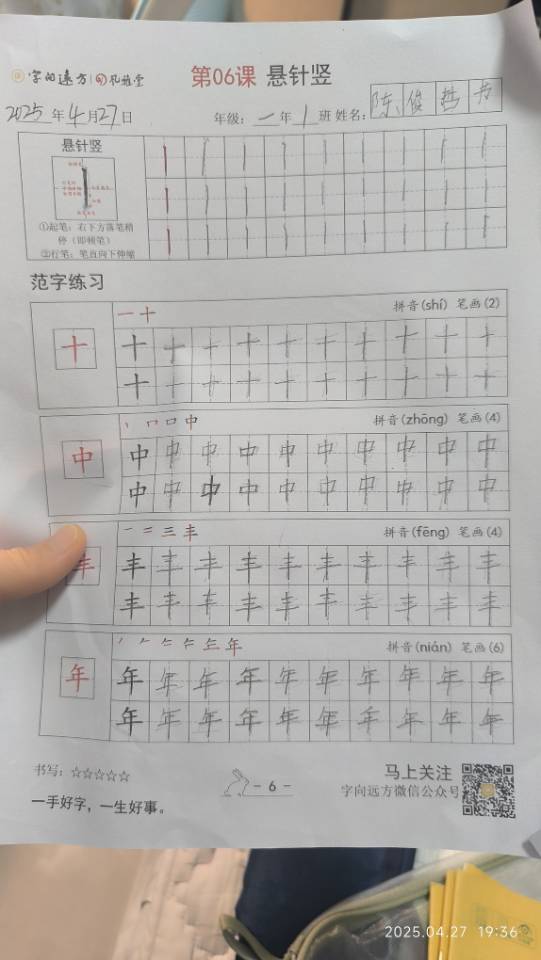 字向远方 礼雅堂 第06课 悬针竖
2025年4月27日 年级:一年1班 姓名:陈俊哲
悬针竖
①起笔:右下方落笔稍
停(即顿笔)
②行笔:笔直向下伸缩
范字练习
一十 拼音(shí) 笔画(2)
十 十 十 十 十 十 十 十 十 十 十
十 十 十 十 十 十 十 十 十 十
丨 口 口 中 拼音(zhōng) 笔画(4)
中 中 中 中 中 中 中 中 中 中 中
中 中 中 中 中 中 中 中 中 中
一 二 三 丰 拼音(fēng) 笔画(4)
丰 丰 丰 丰 丰 丰 丰 丰 丰 丰 丰
丰 丰 丰 丰 丰 丰 丰 丰 丰 丰
年 拼音(nián) 笔画(6)
年 年 年 年 年 年 年 年 年 年 年
年 年 年 年 年 年 年 年 年 年
书写:☆☆☆☆☆ - 6 - 马上关注
字向远方微信公众号
一手好字,一生好事。
2025.04.27 19:36